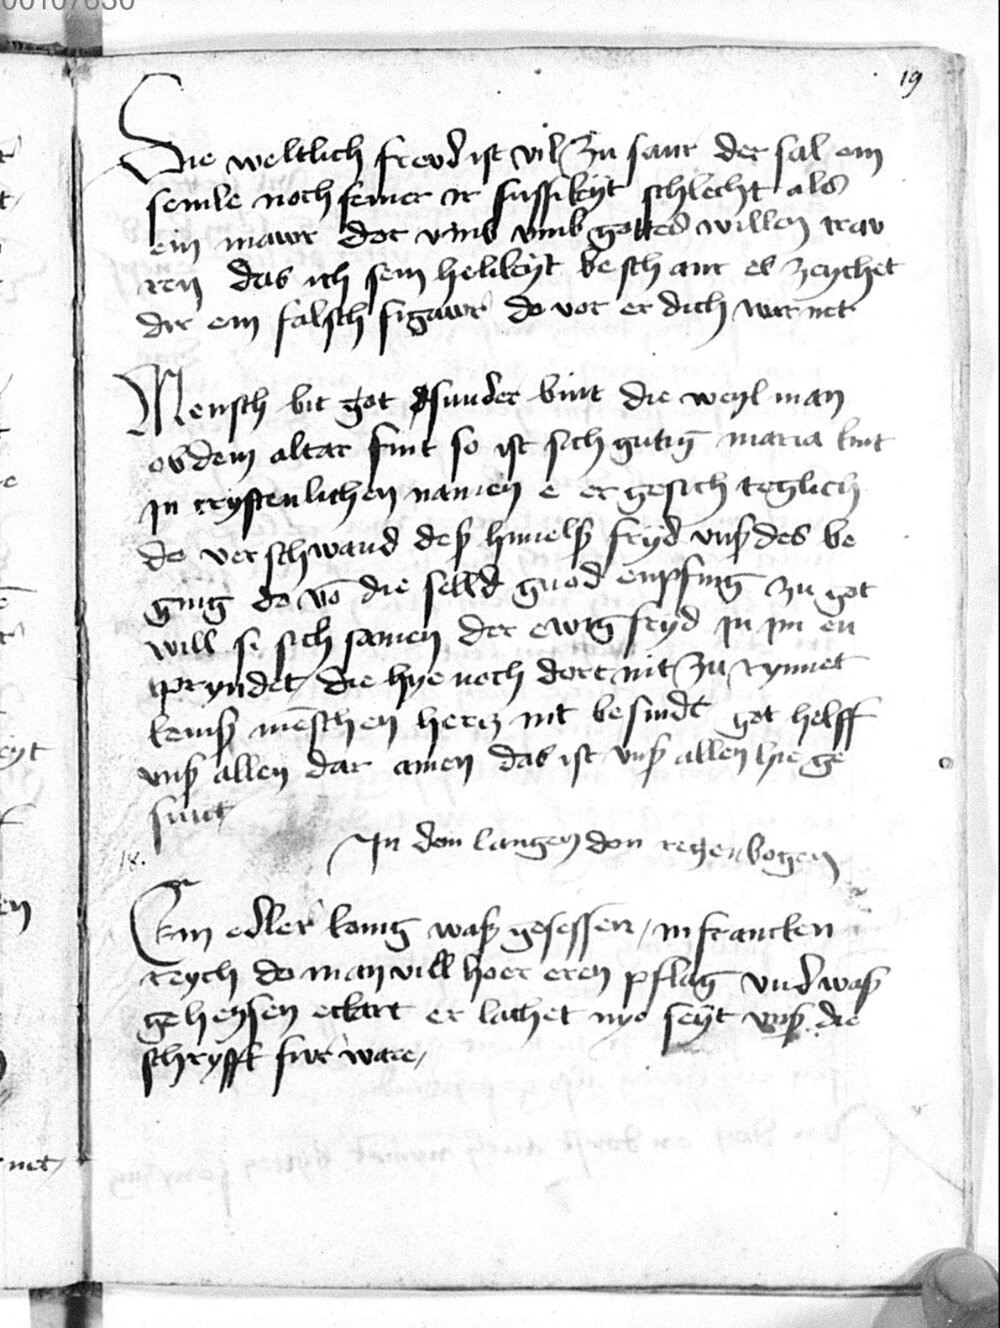 00107630
19
Die weltlich frewd ist vil zu saur der sal ein
semle noch seiner ir sussikeyt schlecht als
ein mawr der vmb vmb gottes willen trav
ren das ich sein helikeyt beschaur es zeychet
dir ein falsch figawr do vor er dich warnet
Mensch bit got gsunder bint die weyl man
ob dem altar sint so ist sich gutig maria kint
in crystenlichen namen e er gesich teglich
do verschwand deß himelß fryd vnß des be
ging do vō die selld gnod enpfing zu got
will se sich samen der ewig fryd in im en
pryndet die hye noch dort nit zu rynnet
keinß menschen hercz nit besindt got helff
vnß allen dar amen das ist vnß allen hie ge
sunt
In dem langen don regenbogen
18.
Ein edler konig waß gesessen / in francken
reych do man vill hoer eren pflag vnd waß
geheysen eckart er lachet nye seyt vnß die
schryfft fur ware /